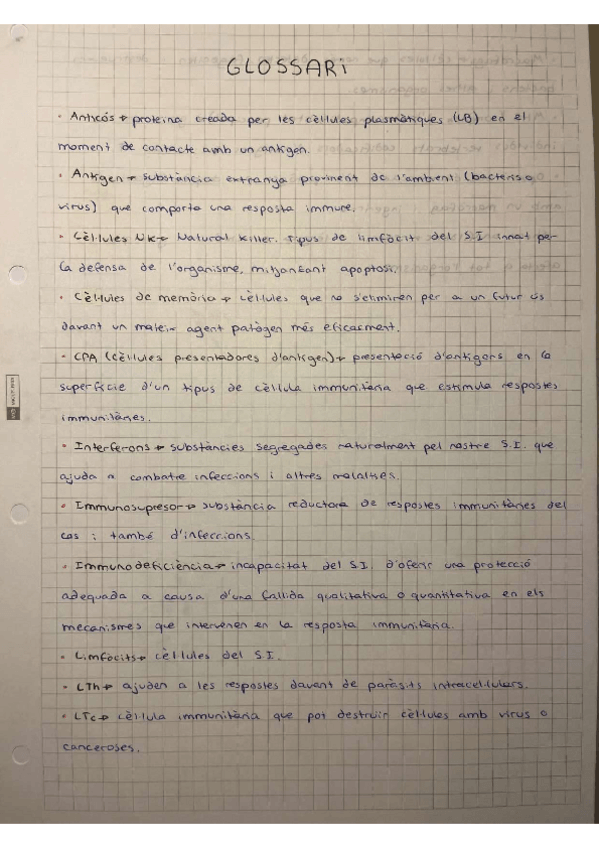 GLOSSARi
· Anticós → proteïna creada per les cèl·lules plasmàtiques (LB) en el
moment de contacte amb un antigen.
· Antigen → substància extranya provinent de l'ambient (bacteris o
virus) que comporta una resposta immune.
· Cèl·lules NK → Natural Killer. Tipus de limfòcit del S.I innat per
la defensa de l'organisme, mitjançant apoptosi.
· Cèl·lules de memòria → cèl·lules que no s'eliminen per a un futur ús
davant un mateix agent patògen més eficaçment.
· CPA (cèl·lules presentadores d'antigen) → presentació d'antigens en la
superfície d'un tipus de cèl·lula immunitària que estimula respostes
immunitàries.
· Interferons → substàncies segregades naturalment pel nostre S.I. que
ajuda a combatre infeccions i altres malalties.
· Immunosupresor → substància reductora de respostes immunitàries del
cos i també d'infeccions.
· Immunodeficiència → incapacitat del S.I. d'oferir una protecció
adequada a causa d'una fallida qualitativa o quantitativa en els
mecanismes que intervenen en la resposta immunitària.
· Limfòcits → cèl·lules del S.I.
· LTh → ajuden a les respostes davant de paràsits intracel·lulars.
· LTc → cèl·lula immunitària que pot destruir cèl·lules amb virus o
canceroses.